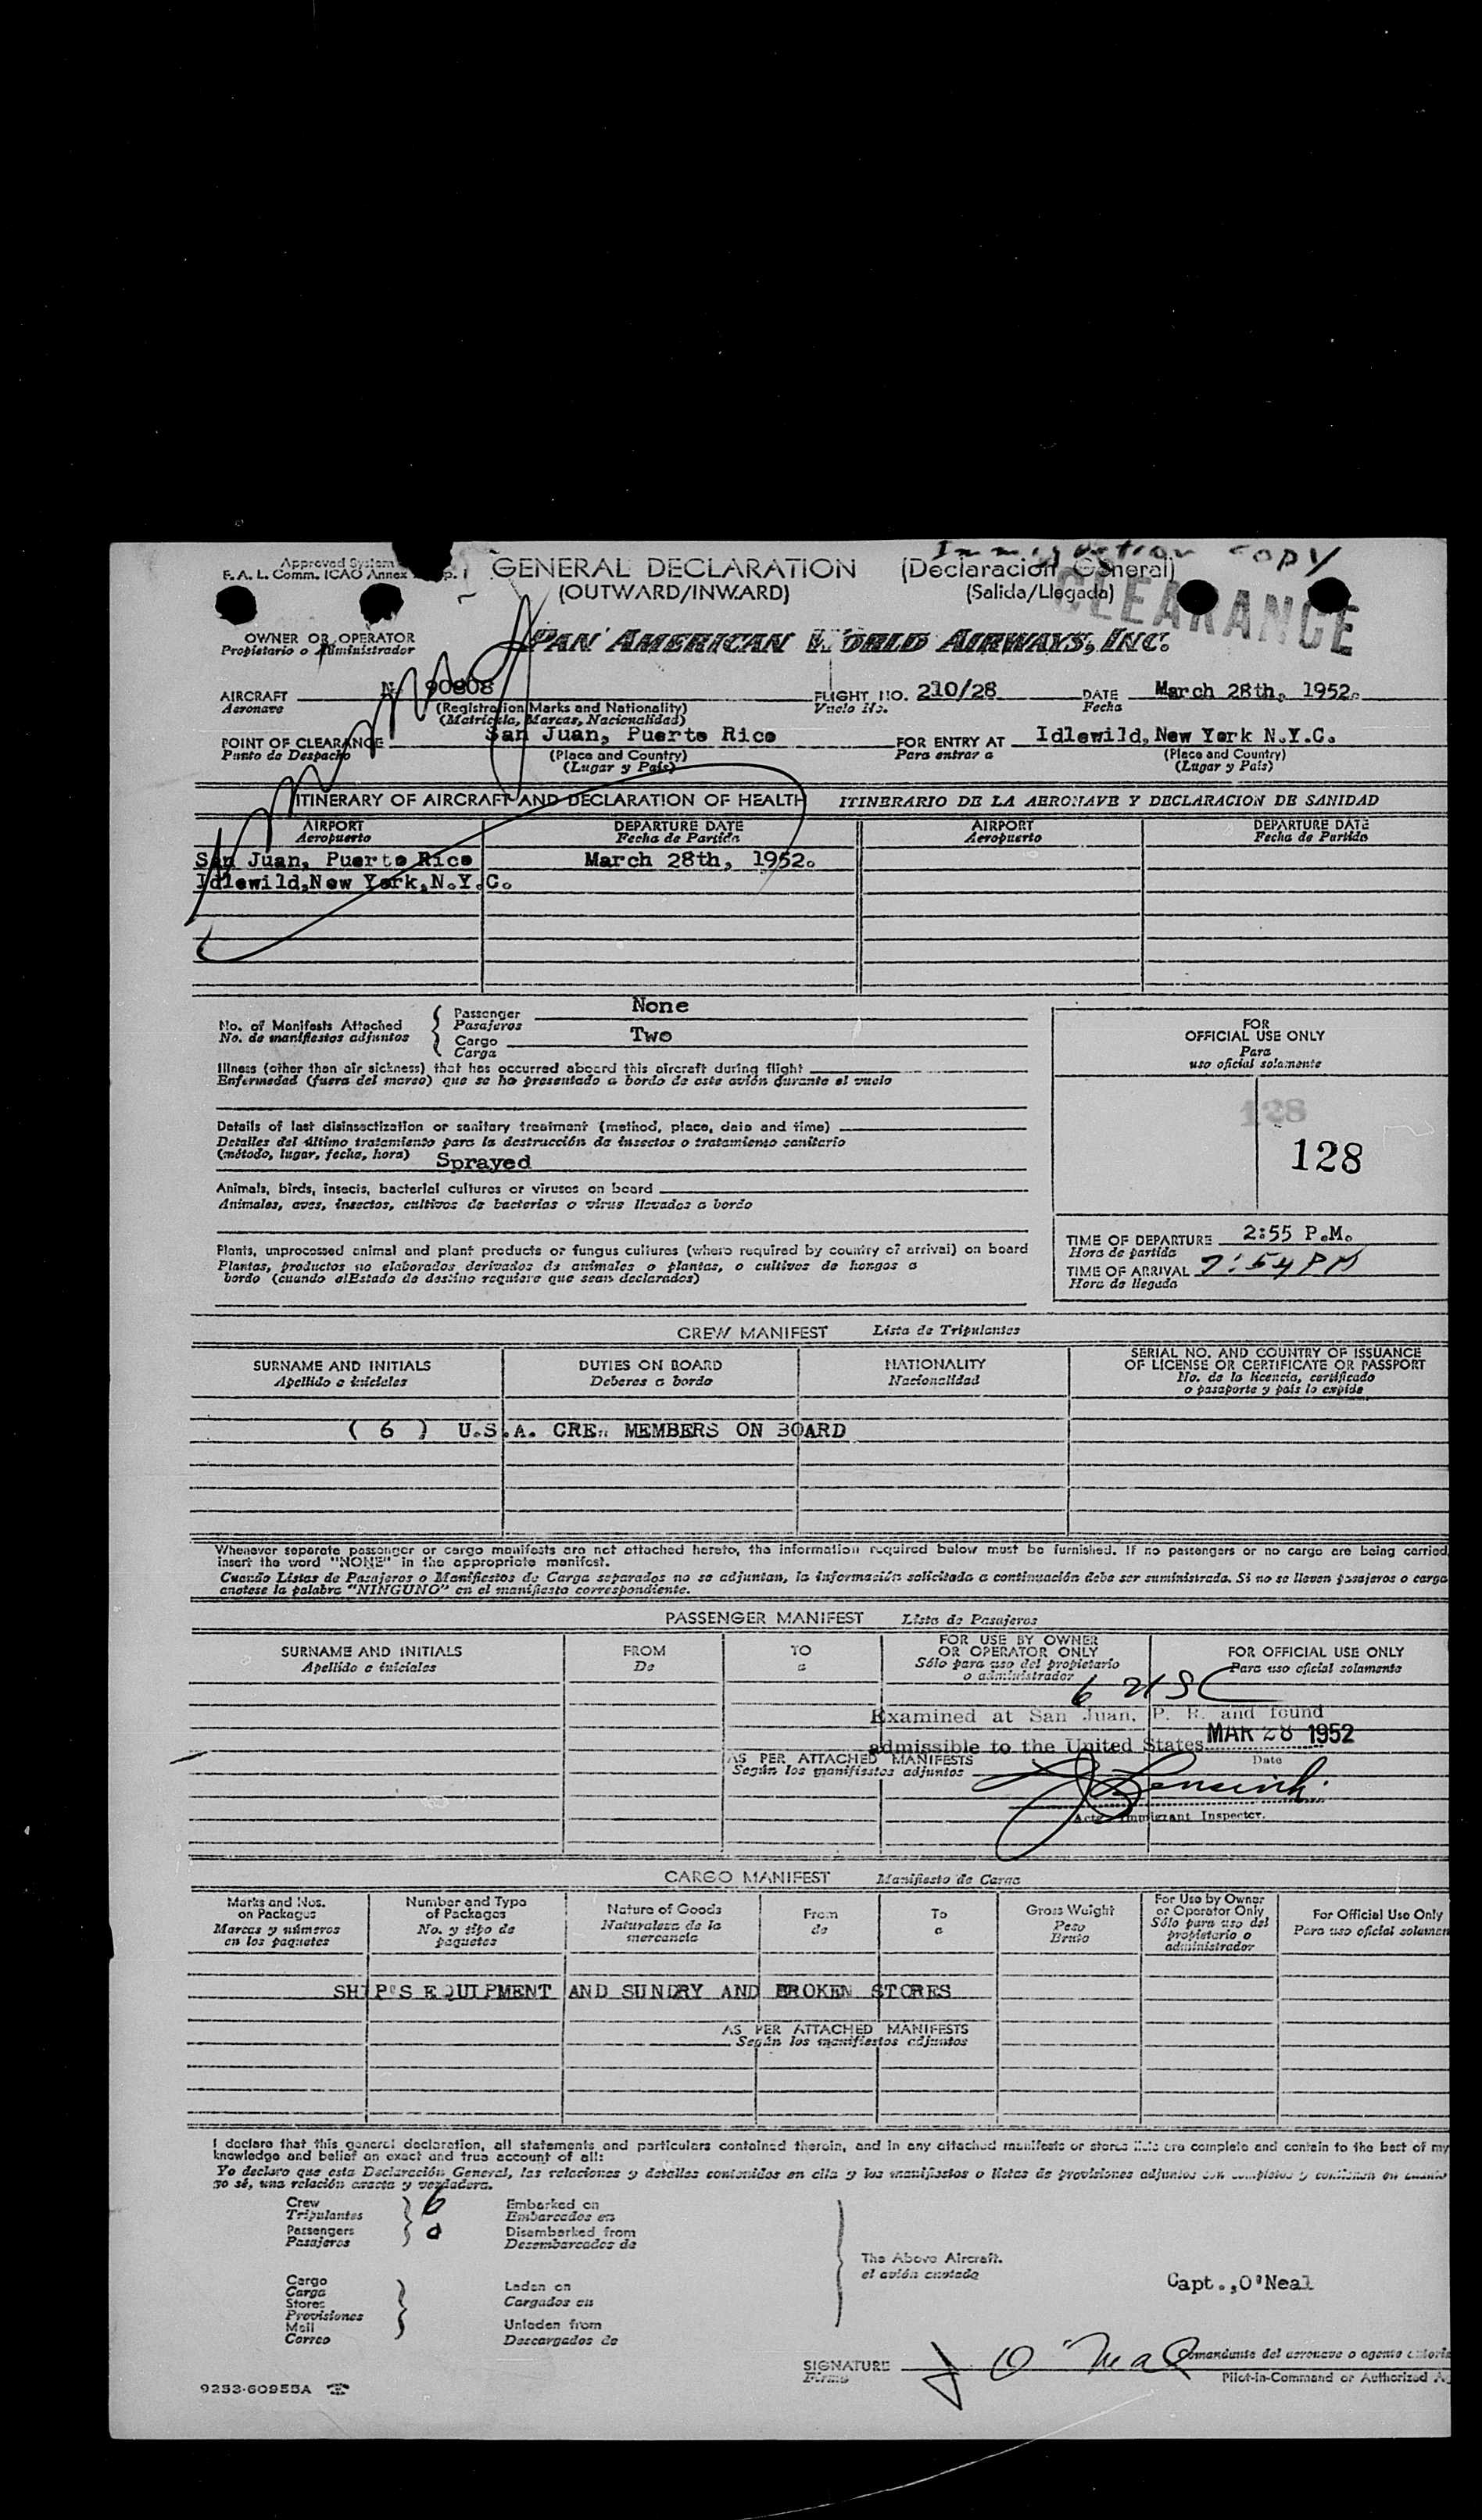 Immigration Copy
Approved System
F. A. L. Comm. ICAO Annex p. 1
GENERAL DECLARATION (Declaración General)
(OUTWARD/INWARD) (Salida/Llegada)
CLEARANCE
OWNER OR OPERATOR
Propietario o Administrador
PAN AMERICAN WORLD AIRWAYS, INC.
AIRCRAFT N- 90808 FLIGHT NO. 210/28 DATE March 28th, 1952.
Aeronave (Registration Marks and Nationality) Vuelo No. Fecha
(Matrícula, Marcas, Nacionalidad)
POINT OF CLEARANCE San Juan, Puerto Rico FOR ENTRY AT Idlewild, New York N.Y.C.
Punto de Despacho (Place and Country) Para entrar a (Place and Country)
(Lugar y País) (Lugar y País)
ITINERARY OF AIRCRAFT AND DECLARATION OF HEALTH ITINERARIO DE LA AERONAVE Y DECLARACION DE SANIDAD
AIRPORT DEPARTURE DATE AIRPORT DEPARTURE DATE
Aeropuerto Fecha de Partida Aeropuerto Fecha de Partida
San Juan, Puerto Rico March 28th, 1952.
Idlewild,New York,N.Y.C.
No. of Manifests Attached Passenger None
No. de manifiestos adjuntos Pasajeros
Cargo Two
Carga
Illness (other than air sickness) that has occurred aboard this aircraft during flight
Enfermedad (fuera del mareo) que se ha presentado a bordo de este avión durante el vuelo
Details of last disinsectization or sanitary treatment (method, place, date and time)
Detalles del último tratamiento para la destrucción de insectos o tratamiento sanitario
(método, lugar, fecha, hora) Sprayed
Animals, birds, insects, bacterial cultures or viruses on board
Animales, aves, insectos, cultivos de bacterias o virus llevados a bordo
Plants, unprocessed animal and plant products or fungus cultures (where required by country of arrival) on board
Plantas, productos no elaborados derivados de animales o plantas, o cultivos de hongos a
bordo (cuando elEstado de destino requiere que sean declarados)
FOR
OFFICIAL USE ONLY
Para
uso oficial solamente
128
128
TIME OF DEPARTURE 2:55 P.M.
Hora de partida
TIME OF ARRIVAL 7:54 PM
Hora de llegada
CREW MANIFEST Lista de Tripulantes
SURNAME AND INITIALS DUTIES ON BOARD NATIONALITY SERIAL NO. AND COUNTRY OF ISSUANCE
OF LICENSE OR CERTIFICATE OR PASSPORT
Apellido e iniciales Deberes a bordo Nacionalidad No. de la licencia, certificado
o pasaporte y país lo expide
( 6 ) U.S.A. CREW MEMBERS ON BOARD
Whenever separate passenger or cargo manifests are not attached hereto, the information required below must be furnished. If no passengers or no cargo are being carried,
insert the word "NONE" in the appropriate manifest.
Cuando Listas de Pasajeros o Manifiestos de Carga separados no se adjuntan, la información solicitada a continuación debe ser suministrada. Si no se llevan pasajeros o carga
anotese la palabra "NINGUNO" en el manifiesto correspondiente.
PASSENGER MANIFEST Lista de Pasajeros
SURNAME AND INITIALS FROM TO FOR USE BY OWNER
OR OPERATOR ONLY FOR OFFICIAL USE ONLY
Apellido e iniciales De a Sólo para uso del propietario
o administrador Para uso oficial solamente
6 USC
Examined at San Juan, P. R. and found
admissible to the United States MAR 28 1952
Date
AS PER ATTACHED MANIFESTS
Según los manifiestos adjuntos
Actg. Immigrant Inspector.
CARGO MANIFEST Manifiesto de Carga
Marks and Nos.
on Packages
Marcas y números
en los paquetes
Number and Type
of Packages
No. y tipo de
paquetes
Nature of Goods
Naturaleza de la
mercancía
From
de
To
a
Gross Weight
Peso
Bruto
For Use by Owner
or Operator Only
Sólo para uso del
propietario o
administrador
For Official Use Only
Para uso oficial solamen
SHIP'S EQUIPMENT AND SUNDRY AND BROKEN STORES
AS PER ATTACHED MANIFESTS
Según los manifiestos adjuntos
I declare that this general declaration, all statements and particulars contained therein, and in any attached manifests or stores lists are complete and contain to the best of my
knowledge and belief an exact and true account of all:
Yo declaro que esta Declaración General, las relaciones y detalles contenidos en ella y los manifiestos o listas de provisiones adjuntos son completos y contienen en cuanto
yo sé, una relación exacta y verdadera.
Crew 6 Embarked on
Tripulantes Embarcados en
Passengers 0 Disembarked from
Pasajeros Desembarcados de
The Above Aircraft.
el avión anotado
Cargo
Carga
Stores
Provisiones
Mail
Correo
Laden on
Cargados en
Unladen from
Descargados de
Capt.,O'Neal
SIGNATURE J O'Neal
Firma
Comandante del aeronave o agente autoriz
Pilot-in-Command or Authorized Ag
9253-60955A